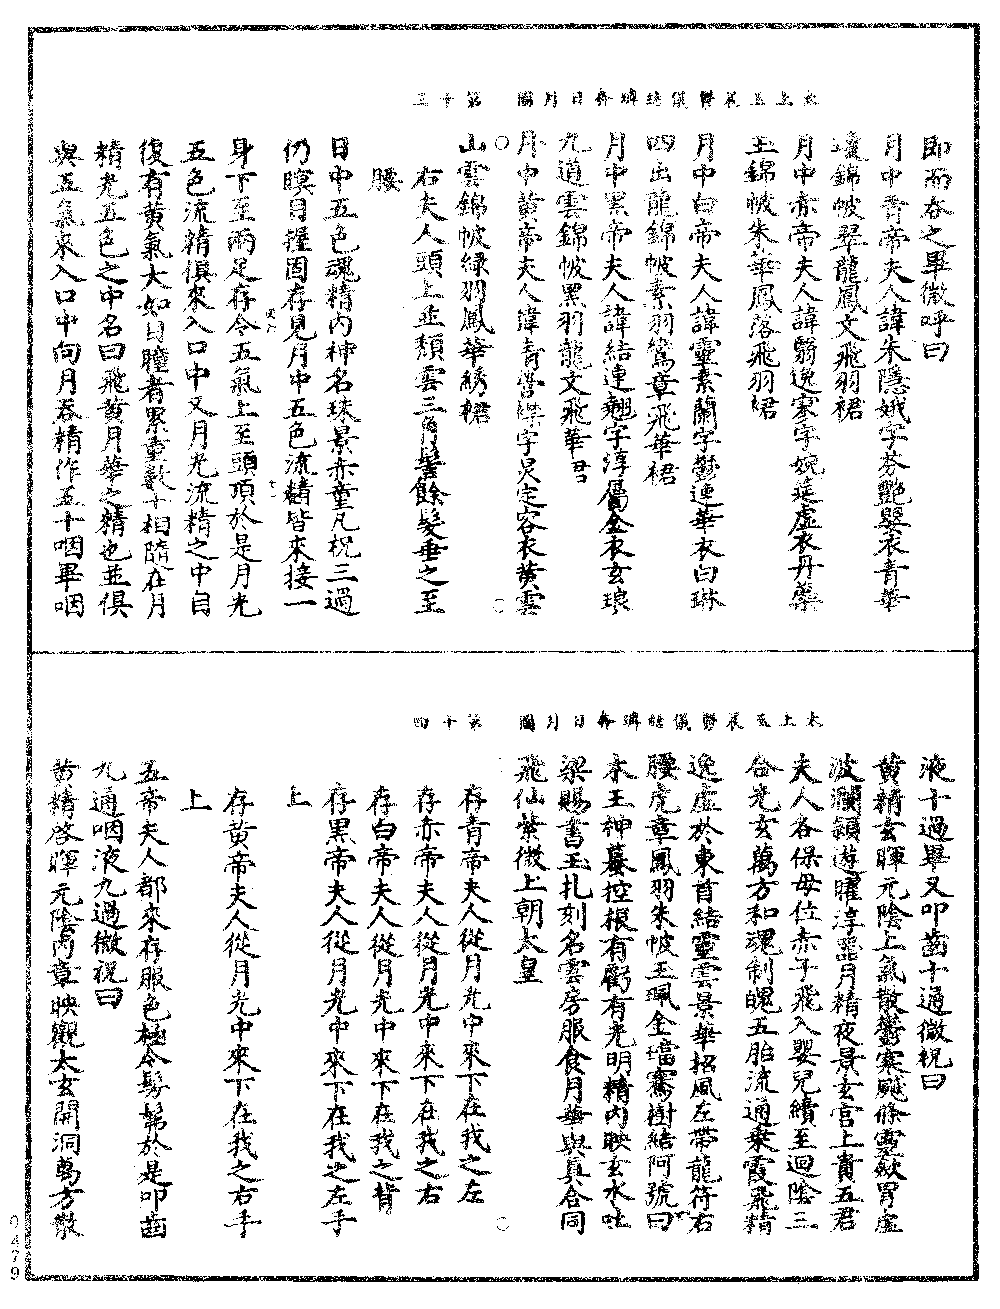 即而吞之畢微呼曰
月中青帝夫人諱朱隱娥字芬艷嬰衣青華
瓊錦帔翠龍鳳文飛羽裙
月中赤帝夫人諱翳逸寥字婉筵虛衣丹蘂
玉錦帔朱華鳳落飛羽裙
月中白帝夫人諱靈素蘭字鬱連華衣白琳
四出龍錦帔素羽鸞章飛華裙
月中黑帝夫人諱結連翹字淳屬金衣玄琅
九道雲錦帔黑羽龍文飛華君
月中黃帝夫人諱青營襟字炅定容衣黃雲
山雲錦帔綠羽鳳華綉裙
右夫人頭上並頹雲三角髻餘髮垂之至
腰
日中五色魂精內神名珠景赤童凡柷三過
仍瞑目握固存見月中五色流精皆來接一
身下至兩足存令五氣上至頭頂於是月光
五色流精俱來入口中又月光流精之中自
復有黃氣大如目瞳者累重數十相隨在月
精光五色之中名曰飛黃月華之精也並俱
與五氣來入口中向月吞精作五十咽畢咽
太上玉晨鬱儀結璘奔日月圖　第十三
液十過畢又叩齒十過微柷曰
黃精玄暉元陰上氣散鬱寒飇條靈斂胃虛
波瀾潁遊曜淳器月精夜景玄宮上貴五君
夫人各保母位赤子飛入嬰兒續至迴陰三
合光玄萬方和魂制魄五胎流通乘霞飛精
逸虛於東首結靈雲景華招風左帶龍符右
腰虎章鳳羽朱帔玉珮金璫騫樹結阿號曰
木王神蟇控根有虧有光明精內映玄水吐
梁賜書玉札刻名雲房服食月華與真合同
飛仙紫微上朝太皇
存青帝夫人從月光中來下在我之左
存赤帝夫人從月光中來下在我之右
存白帝夫人從月光中來下在我之背
存黑帝夫人從月光中來下在我之左手
上
存黃帝夫人從月光中來下在我之右手
上
五帝夫人都來存服色極令髣髴於是叩齒
九通咽液九過微柷曰
黃精啓暉元陰內章映觀太玄開洞萬方散
太上玉晨鬱儀結璘奔日月圖　第十四
0479